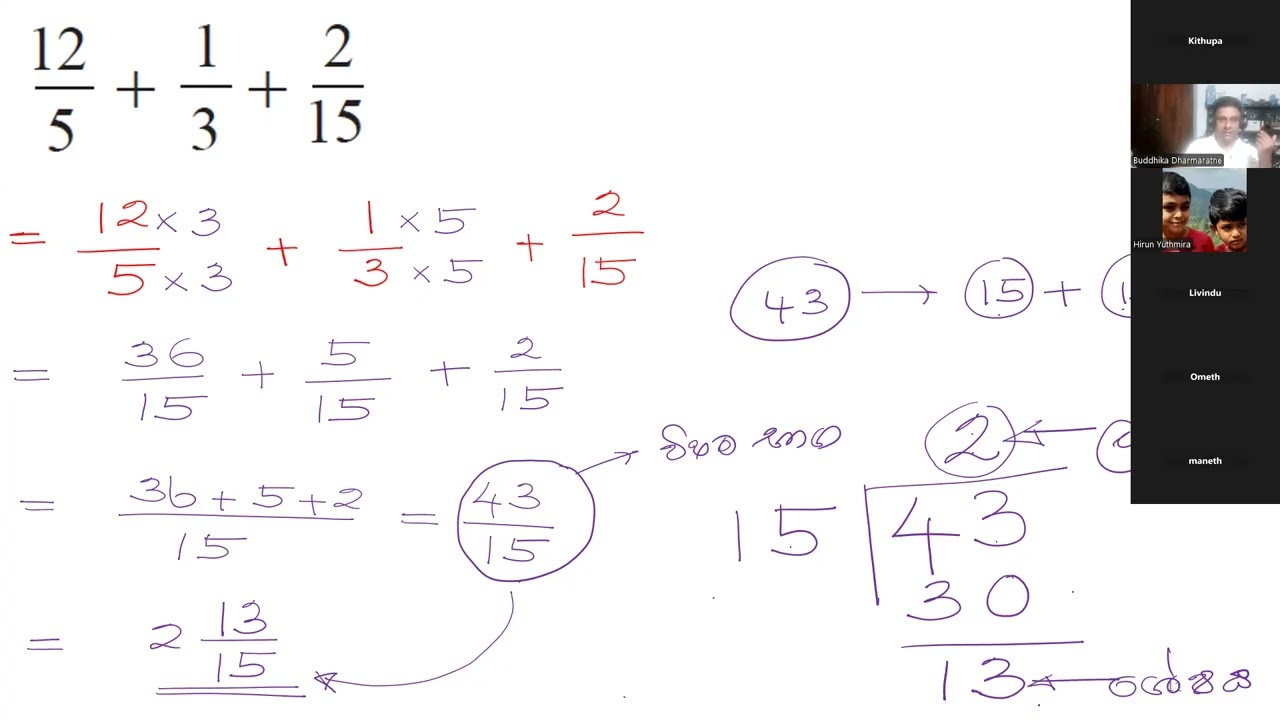 12/5 + 1/3 + 2/15
= 12 × 3/5 × 3 + 1 × 5/3 × 5 + 2/15
= 36/15 + 5/15 + 2/15
= 36 + 5 + 2/15 = 43/15
විෂම භාග
= 2 13/15
43 → 15 +
2 ←
15 43
30
13 ←
Kithupa
Buddhika Dharmaratne
Hirun Yuthmira
Livindu
Ometh
maneth